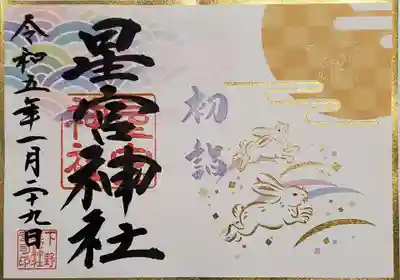 初詣
星宮神社
令和五年一月二十九日